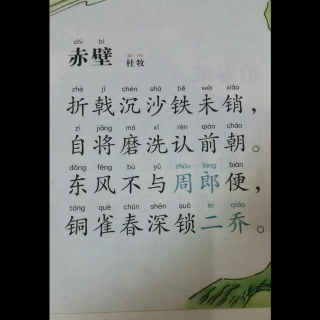 chì bì
赤壁
杜牧
zhé jǐ chén shā tiě wèi xiāo
折戟沉沙铁未销，
zì jiāng mó xǐ rèn qián cháo
自将磨洗认前朝。
dōng fēng bù yǔ zhōu láng biàn
东风不与周郎便，
tóng què chūn shēn suǒ èr qiáo
铜雀春深锁二乔。